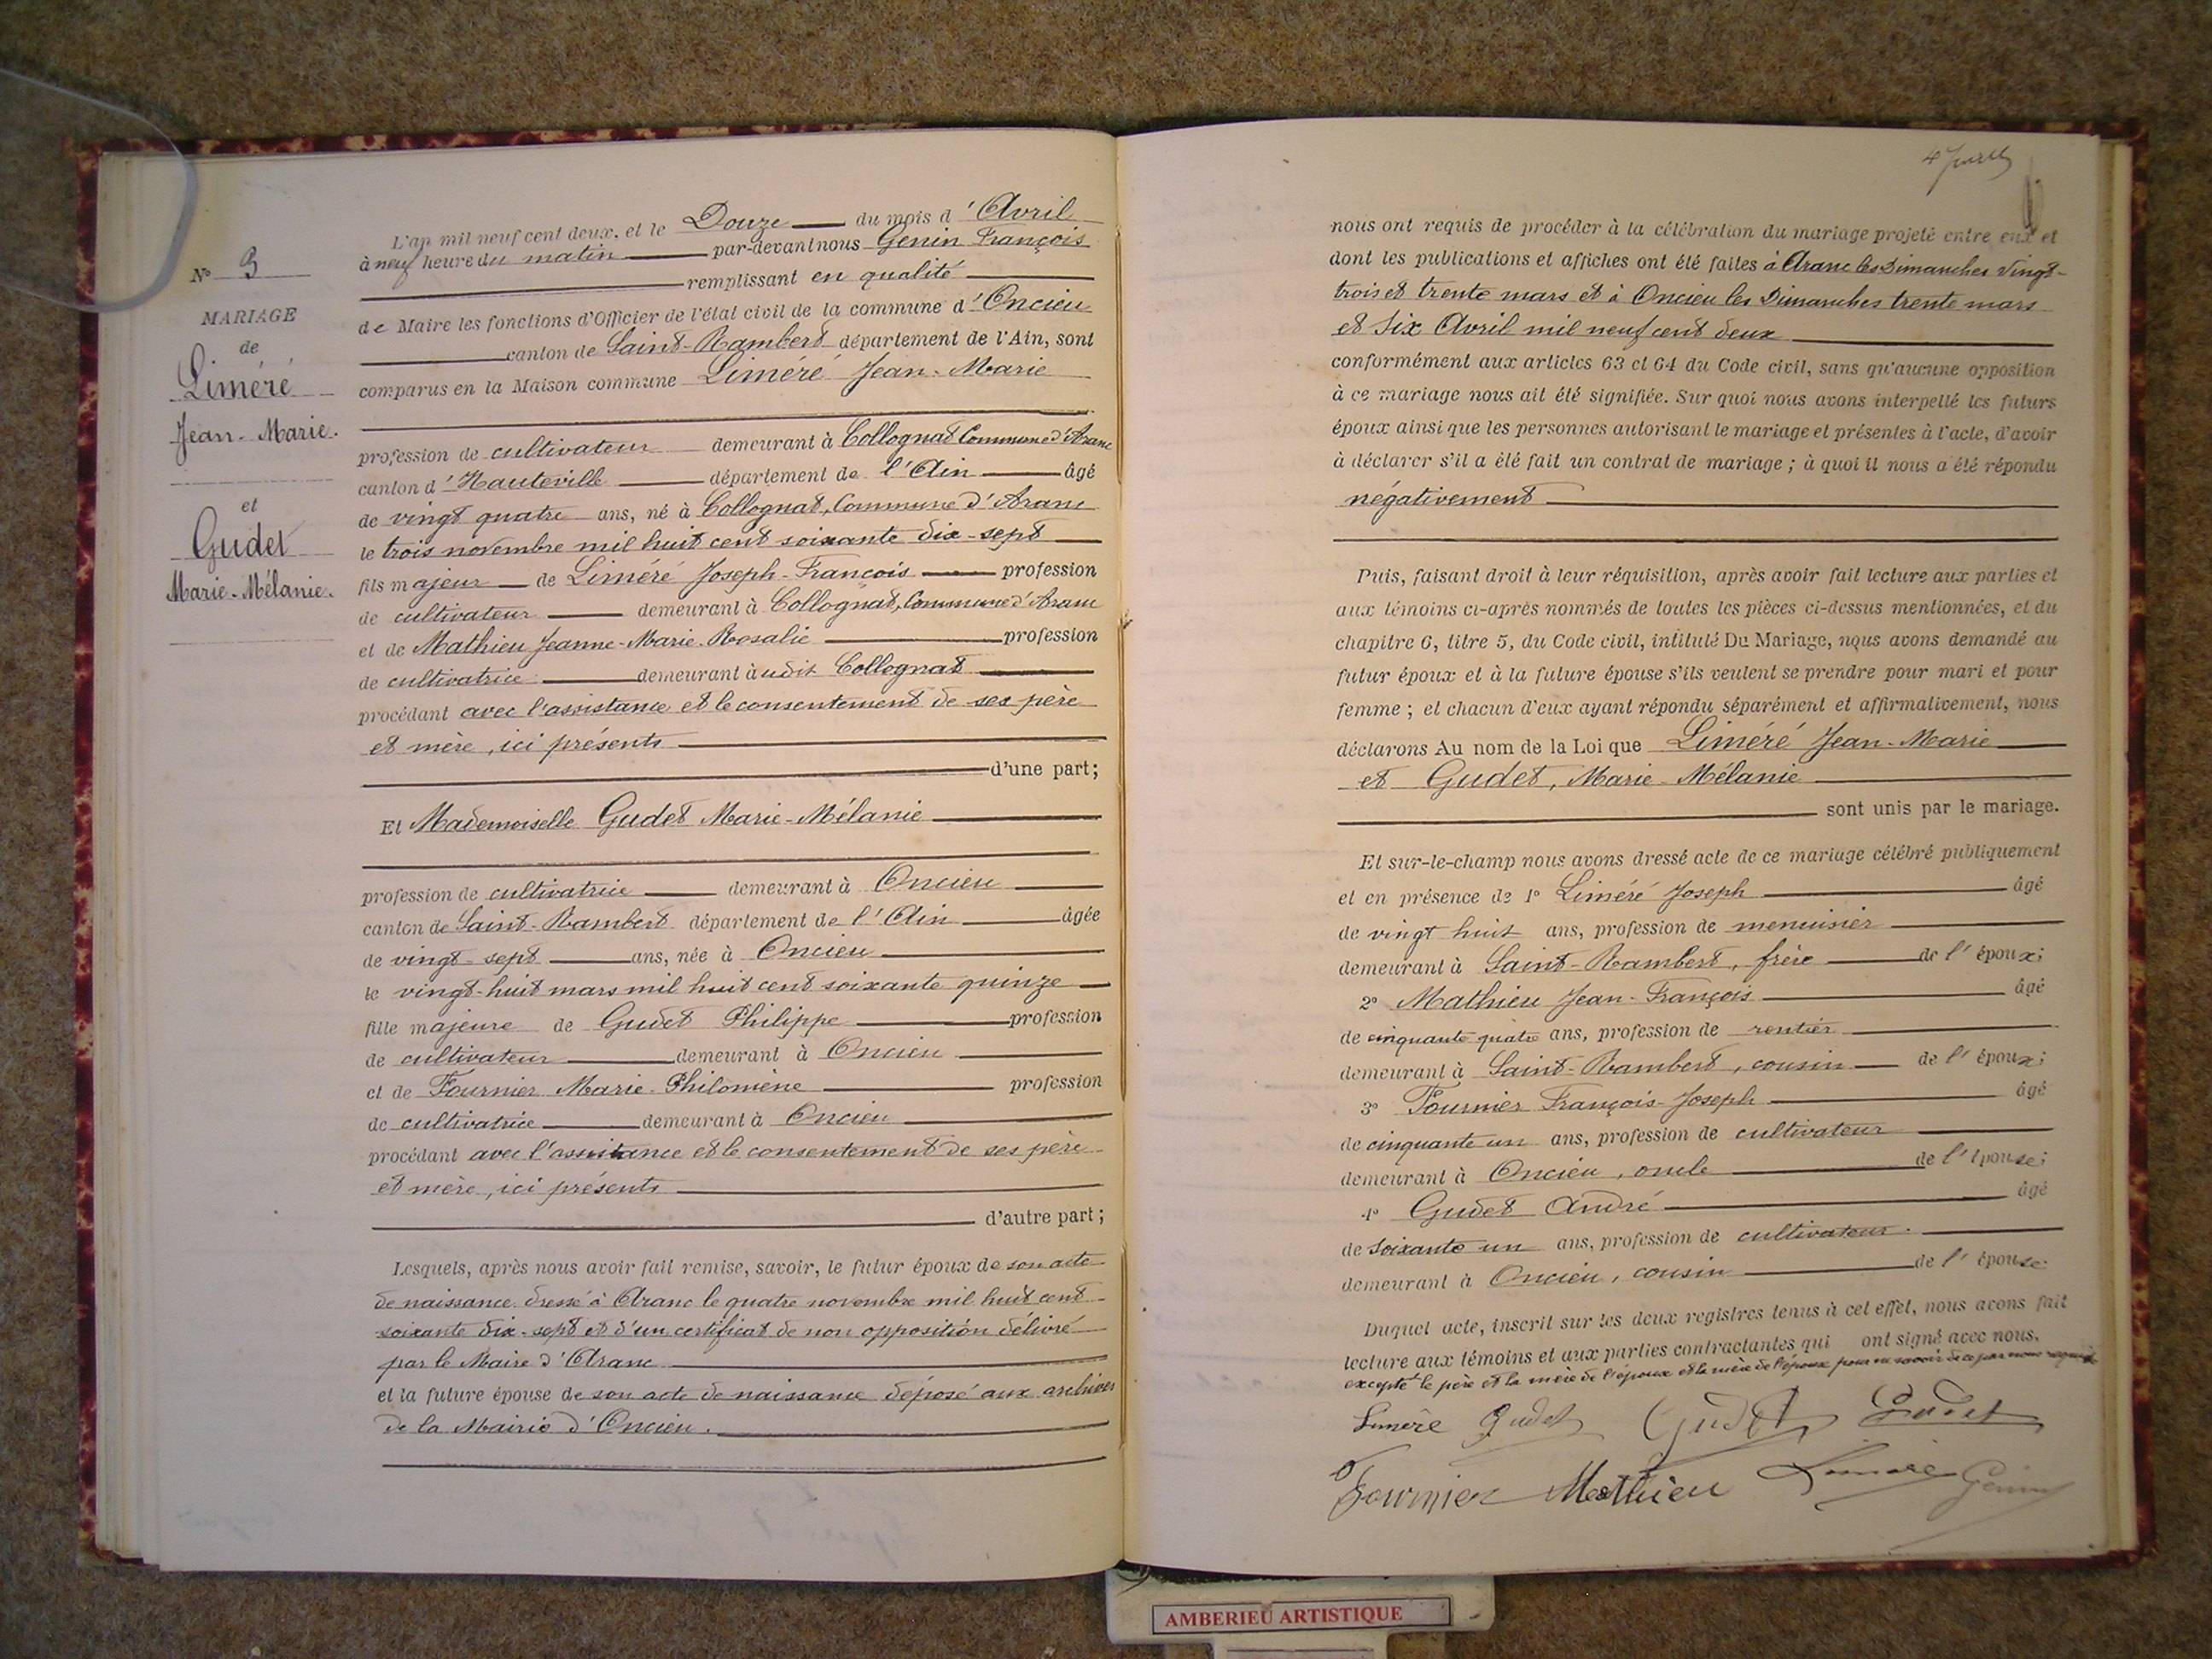 N° 3
MARIAGE
de
Liméré
Jean-Marie.
et
Gudet
Marie-Mélanie.
L'an mil neuf cent deux, et le Douze du mois d'Avril
à neuf heure du matin par-devant nous Genin François
remplissant en qualité
de Maire les fonctions d'Officier de l'état civil de la commune d'Oncieu
canton de Saint-Rambert département de l'Ain, sont
comparus en la Maison commune Liméré Jean-Marie
profession de cultivateur demeurant à Collognat Commune d'Aranc
canton d'Hauteville département de l'Ain âgé
de vingt quatre ans, né à Collognat, Commune d'Aranc
le trois novembre mil huit cent soixante dix-sept
fils majeur de Liméré Joseph-François profession
de cultivateur demeurant à Collognat, Commune d'Aranc
et de Mathieu Jeanne-Marie-Rosalie profession
de cultivatrice demeurant audit Collognat
procédant avec l'assistance et le consentement de ses père
et mère, ici présents
d'une part;
Et Mademoiselle Gudet Marie-Mélanie
profession de cultivatrice demeurant à Oncieu
canton de Saint-Rambert département de l'Ain âgée
de vingt-sept ans, née à Oncieu
le vingt-huit mars mil huit cent soixante quinze
fille majeure de Gudet Philippe profession
de cultivateur demeurant à Oncieu
et de Fournier Marie-Philomène profession
de cultivatrice demeurant à Oncieu
procédant avec l'assistance et le consentement de ses père
et mère, ici présents
d'autre part;
Lesquels, après nous avoir fait remise, savoir, le futur époux de son acte
de naissance dressé à Aranc le quatre novembre mil huit cent
soixante dix-sept et d'un certificat de non opposition délivré
par le Maire d'Aranc
et la future épouse de son acte de naissance déposé aux archives
de la Mairie d'Oncieu.
nous ont requis de procéder à la célébration du mariage projeté entre eux et
dont les publications et affiches ont été faites à Aranc les Dimanches Vingt-
trois et trente mars et à Oncieu les Dimanches trente mars
et Six Avril mil neuf cent deux
conformément aux articles 63 et 64 du Code civil, sans qu'aucune opposition
à ce mariage nous ait été signifiée. Sur quoi nous avons interpellé les futurs
époux ainsi que les personnes autorisant le mariage et présentes à l'acte, d'avoir
à déclarer s'il a été fait un contrat de mariage; à quoi il nous a été répondu
négativement
Puis, faisant droit à leur réquisition, après avoir fait lecture aux parties et
aux témoins ci-après nommés de toutes les pièces ci-dessus mentionnées, et du
chapitre 6, titre 5, du Code civil, intitulé Du Mariage, nous avons demandé au
futur époux et à la future épouse s'ils veulent se prendre pour mari et pour
femme; et chacun d'eux ayant répondu séparément et affirmativement, nous
déclarons Au nom de la Loi que Liméré Jean-Marie
et Gudet, Marie-Mélanie
sont unis par le mariage.
Et sur-le-champ nous avons dressé acte de ce mariage célébré publiquement
et en présence de 1° Liméré Joseph âgé
de vingt huit ans, profession de menuisier
demeurant à Saint-Rambert, frère de l'époux;
2° Mathieu Jean-François âgé
de cinquante quatre ans, profession de rentier
demeurant à Saint-Rambert, cousin de l'époux;
3° Fournier François-Joseph âgé
de cinquante un ans, profession de cultivateur
demeurant à Oncieu, oncle de l'épouse;
4° Gudet André âgé
de soixante un ans, profession de cultivateur.
demeurant à Oncieu, cousin de l'épouse.
Duquel acte, inscrit sur les deux registres tenus à cet effet, nous avons fait
lecture aux témoins et aux parties contractantes qui ont signé avec nous.
excepté le père et la mère de l'époux et la mère de l'épouse pour ne savoir de ce par nous requis
Liméré Gudet Gudet Gudet
Fournier Mathieu Limeré Genin
AMBERIEU ARTISTIQUE